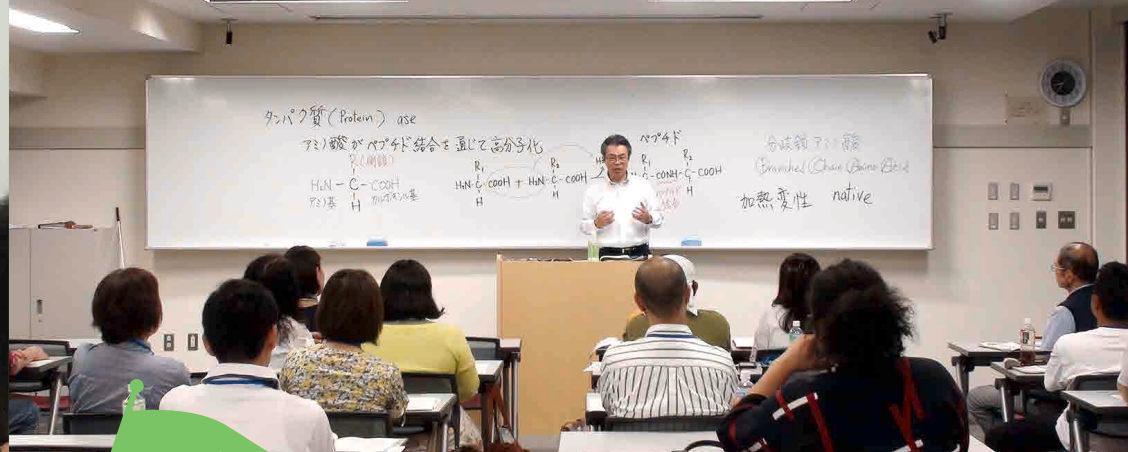 タンパク質 (Protein) ase
アミノ酸がペプチド結合を通じて高分子化
R (側鎖)
H₂N - C - COOH
H
アミノ基 カルボキシル基
R₁ R₂
H₂N - C - COOH + H₂N - C - COOH
H H
ペプチド
R₁ R₂
C - CONH - C - COOH
H
分岐鎖アミノ酸
(Branched Chain Amino Acid
加熱変性 native